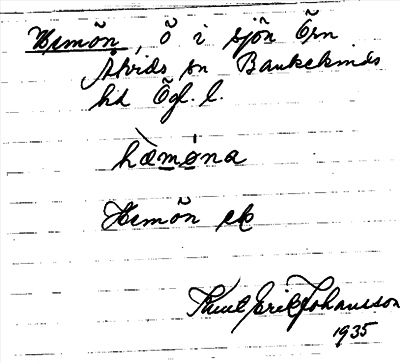 Hemön, ö i sjön Örn
Åtvids sn Bankekinds
hd Ögl. l.
hæmøna
Hemön ek
Knut Erik Johansson
1935